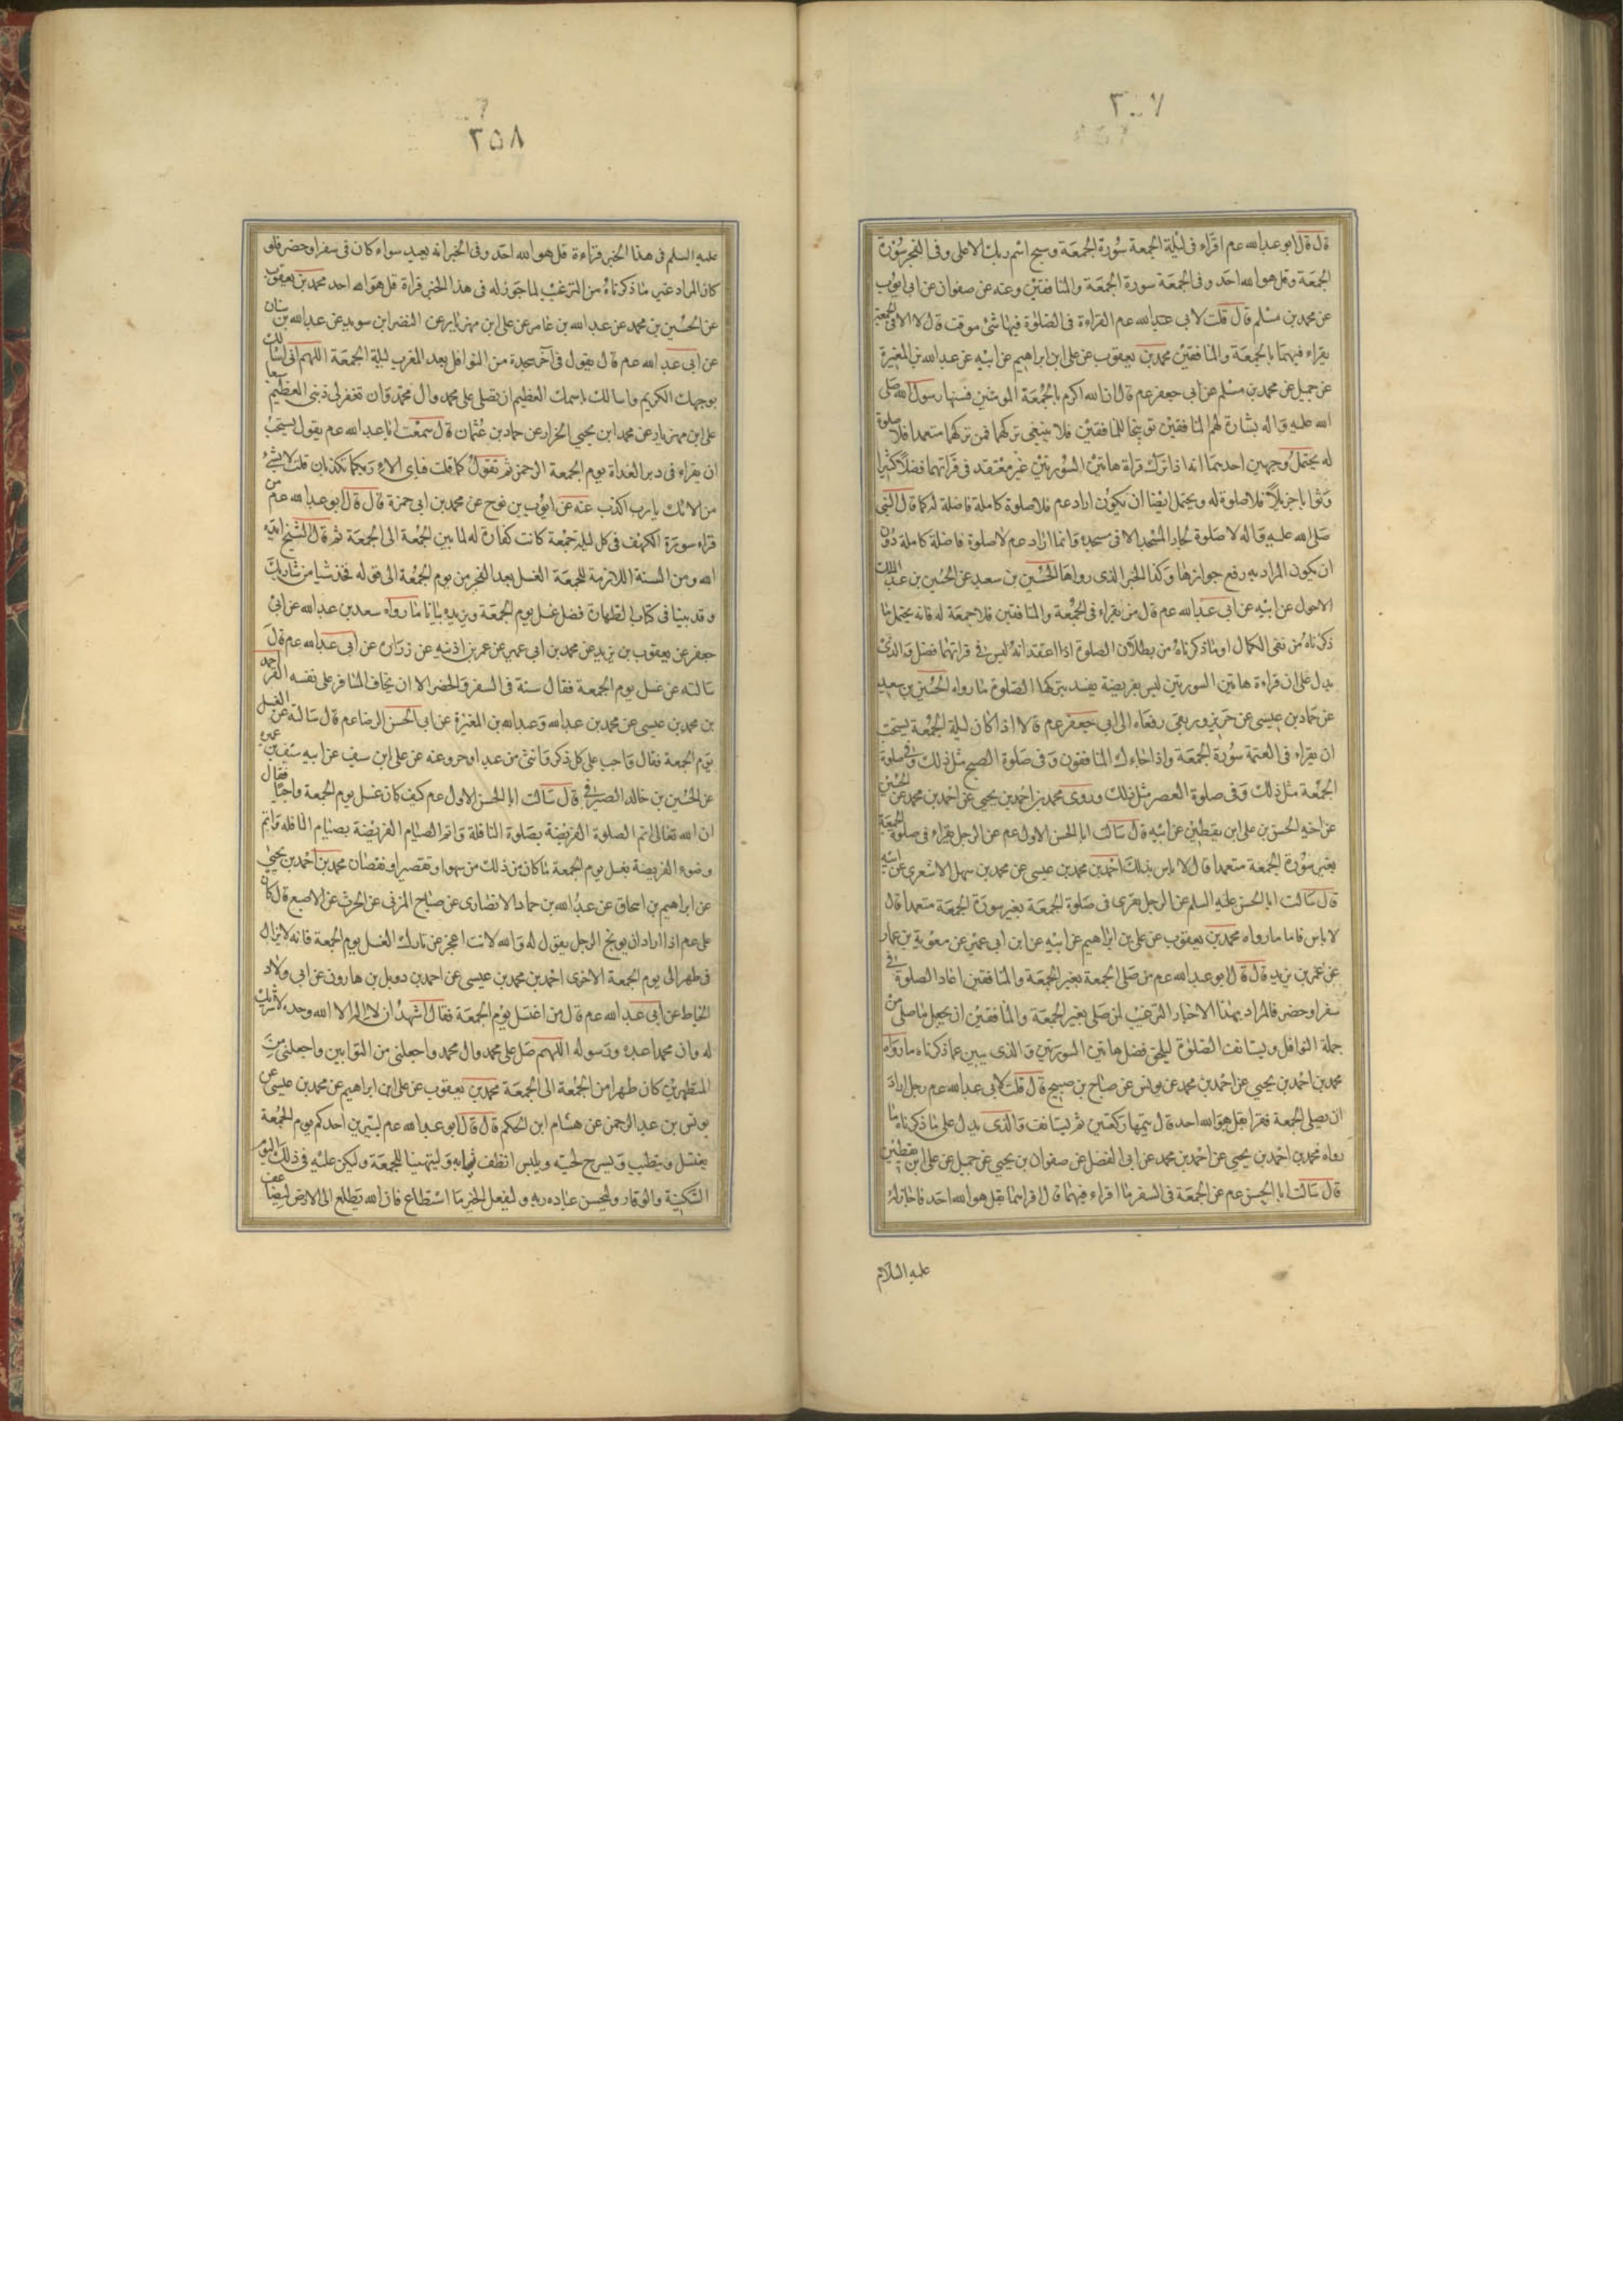 ٣٠٧
قال قال ابو عبدالله عم اقراء فى ليلة الجمعة سورة الجمعة وسبح اسم ربك الاعلى وفى الفجر سورة
الجمعة وقل هو الله احد وفى الجمعة سورة الجمعة والمنافقين وعنه عن صفوان عن ابى ايوب
عن محمد بن مسلم قال قلت لابى عبدالله عم القراءة فى الصلوة فيها شئ موقت قال لا الا فى الجمعة
يقراء فيهما بالجمعة والمنافقين محمد بن يعقوب عن على ابن ابراهيم عن ابيه عن عبدالله بن المغيرة
عن جميل عن محمد بن مسلم عن ابى جعفر عم قال ان الله اكرم بالجمعة المومنين فسنها رسول الله صلى
الله عليه واله بشارة لهم والمنافقين توبيخا للمنافقين فلا ينبغى تركهما فمن تركهما متعمدا فلا صلوة
له يحتمل وجهين احدهما اذا ترك قراة هاتين السورتين غير معتقد فى قراتهما فضلا كثيرا
وثوابا جزيلا فلا صلوة له ويحتمل ايضا ان يكون اراد عم فلا صلوة كاملة فاضلة له كما قال النبى
صلى الله عليه واله لا صلوة لجار المسجد الا فى مسجده وانما اراد عم لا صلوة فاضلة كاملة دون
ان يكون المراد به رفع جوازها وكذا الخبر الذى رواها الحسين بن سعيد عن الحسين بن عبد الملك
الاحول عن ابيه عن ابى عبدالله عم قال من لم يقراء فى الجمعة والمنافقين فلا جمعة له فانه يحتمل ما
ذكرناه من نفى الكمال او ما ذكرناه من بطلان الصلوة اذا اعتقد انه ليس فى قراتهما فضل والذى
يدل على ان قراءة هاتين السورتين ليس بفريضة يفسد بتركهما الصلوة ما رواه الحسين بن سعيد
عن حماد بن عيسى عن حريز وربعى رفعاه الى ابى جعفر عم قالا اذا كان ليلة الجمعة يستحب
ان يقراء فى العتمة سورة الجمعة واذا جاءك المنافقون وفى صلوة الصبح مثل ذلك وفى صلوة
الجمعة مثل ذلك وفى صلوة العصر مثل ذلك وروى محمد بن احمد بن يحيى عن احمد بن محمد عن الحسين
عن اخيه الحسن بن على ابن يقطين عن ابيه قال سالت ابا الحسن الاول عم عن الرجل يقراء فى صلوة الجمعة
بغير سورة الجمعة متعمدا قال لا باس بذلك احمد بن محمد بن عيسى عن محمد بن سهل الاشعرى عن ابيه
قال سالت ابا الحسن عليه السلم عن الرجل يقرى فى صلوة الجمعة بغير سورة الجمعة متعمدا قال
لا باس فاما ما رواه محمد بن يعقوب عن على بن ابراهيم عن ابيه عن ابن ابى عمير عن معوية بن عمار
عن عمر بن يزيد قال قال ابو عبدالله عم من صلى الجمعة بغير الجمعة والمنافقين اعاد الصلوة فى
سفر او حضر فالمراد بهذا الاخبار الترغيب لمن صلى بغير الجمعة والمنافقين ان يجعل ما صلى من
جملة النوافل ويستانف الصلوة ليلحق فضل هاتين السورتين والذى يبين عما ذكرناه ما رواه
محمد بن احمد بن يحيى عن احمد بن محمد عن يونس عن صباح بن صبيح قال قلت لابى عبدالله عم رجل اراد
ان يصلى الجمعة فقرا بقل هو الله احد قال يتمها ركعتين ثم يستانف والذى يدل على ما ذكرناه ما
رواه محمد بن احمد بن يحيى عن احمد بن محمد عن ابى الفضل عن صفوان بن يحيى عن جميل عن على ابن يقطين
قال سالت ابا الحسن عم عن الجمعة فى السفر ما اقراء فيهما قال اقراهما بقل هو الله احد فاجازله
عليه السلام
٣٥٨
عليه السلم فى هذا الخبر قراءة قل هو الله احد وفى الخبر انه يعيد سواء كان فى سفر او حضر فلو
كان المراد غير ما ذكرناه من الترغيب لما جوز له فى هذا الخبر قراة قل هو الله احد محمد بن يعقوب
عن الحسين بن محمد عن عبدالله بن عامر عن على ابن مهزيار عن النضر ابن سويد عن عبدالله بن سنان
عن ابى عبدالله عم قال يقول فى آخر سجدة من النوافل بعد المغرب ليلة الجمعة اللهم انى اسالك
بوجهك الكريم واسالك باسمك العظيم ان تصلى على محمد وال محمد وان تغفر لى ذنبى العظيم سبعا
على ابن مهزيار عن محمد ابن يحيى الخزاز عن حماد بن عثمان قال سمعت ابا عبدالله عم يقول يستحب
ان يقراء فى دبر الغداة يوم الجمعة الرحمن ثم تقول كلما قلت فباى الاء ربكما تكذبان قلت لا بشئ
من الائك يا رب اكذب عنه عن ايوب بن نوح عن محمد بن ابى حمزة قال قال ابو عبدالله عم من
قراء سورة الكهف فى كل ليلة جمعة كانت كفارة له لما بين الجمعة الى الجمعة ثم قال الشيخ ايده
الله ومن السنة اللازمة للجمعة الغسل بعد الفجر من يوم الجمعة الى قوله فخذ شيا من شاربك
وقد بينا فى كتاب الطهارة فضل غسل يوم الجمعة ويزيده بيانا ما رواه سعد بن عبدالله عن ابى
جعفر عن يعقوب بن يزيد عن محمد بن ابى عمير عن عمر بن اذينه عن زرارة عن ابى عبدالله عم قال
سالته عن غسل يوم الجمعة فقال سنة فى السفر والحضر الا ان يخاف المسافر على نفسه القر احمد
بن محمد بن عيسى عن محمد بن عبدالله وعبدالله بن المغيرة عن ابى الحسن الرضا عم قال سالته عن الغسل
يوم الجمعة فقال واجب على كل ذكر وانثى من عبد او حر وعنه عن على ابن سيف عن ابيه سيف بن عميرة
عن الحسين بن خالد الصيرفى قال سالت ابا الحسن الاول عم كيف كان غسل يوم الجمعة واجبا فقال
ان الله تعالى اتم الصلوة الفريضة بصلوة النافلة واتم الصيام الفريضة بصيام النافله واتم
وضوء الفريضة بغسل يوم الجمعة ما كان من ذلك من سهو او تقصير او نقصان محمد بن احمد بن يحيى
عن ابراهيم بن اسحاق عن عبدالله بن حماد الانصارى عن صباح المزنى عن الحرث عن الاصبع قال كان
على عم اذا اراد ان يوبخ الرجل يقول له والله لانت اعجز عن تارك الغسل يوم الجمعة فانه لا يزال
فى طهر الى يوم الجمعة الاخرى احمد بن محمد بن عيسى عن احمد بن دويل بن هارون عن ابى ولاد
الخياط عن ابى عبدالله عم قال من اغتسل يوم الجمعة فقال اشهد ان لا اله الا الله وحده لا شريك
له وان محمدا عبده ورسوله اللهم صل على محمد وال محمد واجعلنى من التوابين واجعلنى من
المتطهرين كان طهرا من الجمعة الى الجمعة محمد بن يعقوب عن على ابن ابراهيم عن محمد بن عيسى عن
يونس بن عبد الرحمن عن هشام ابن الحكم قال قال ابو عبدالله عم ليتزين احدكم يوم الجمعة
يغتسل ويتطيب ويسرح لحيته ويلبس انظف ثيابه وليتهيئا للجمعة وليكن عليه فى ذلك اليوم
السكينة والوقار وليحسن عباده ربه وليفعل الخير ما استطاع فان الله يطلع الى الارض ليضاعف